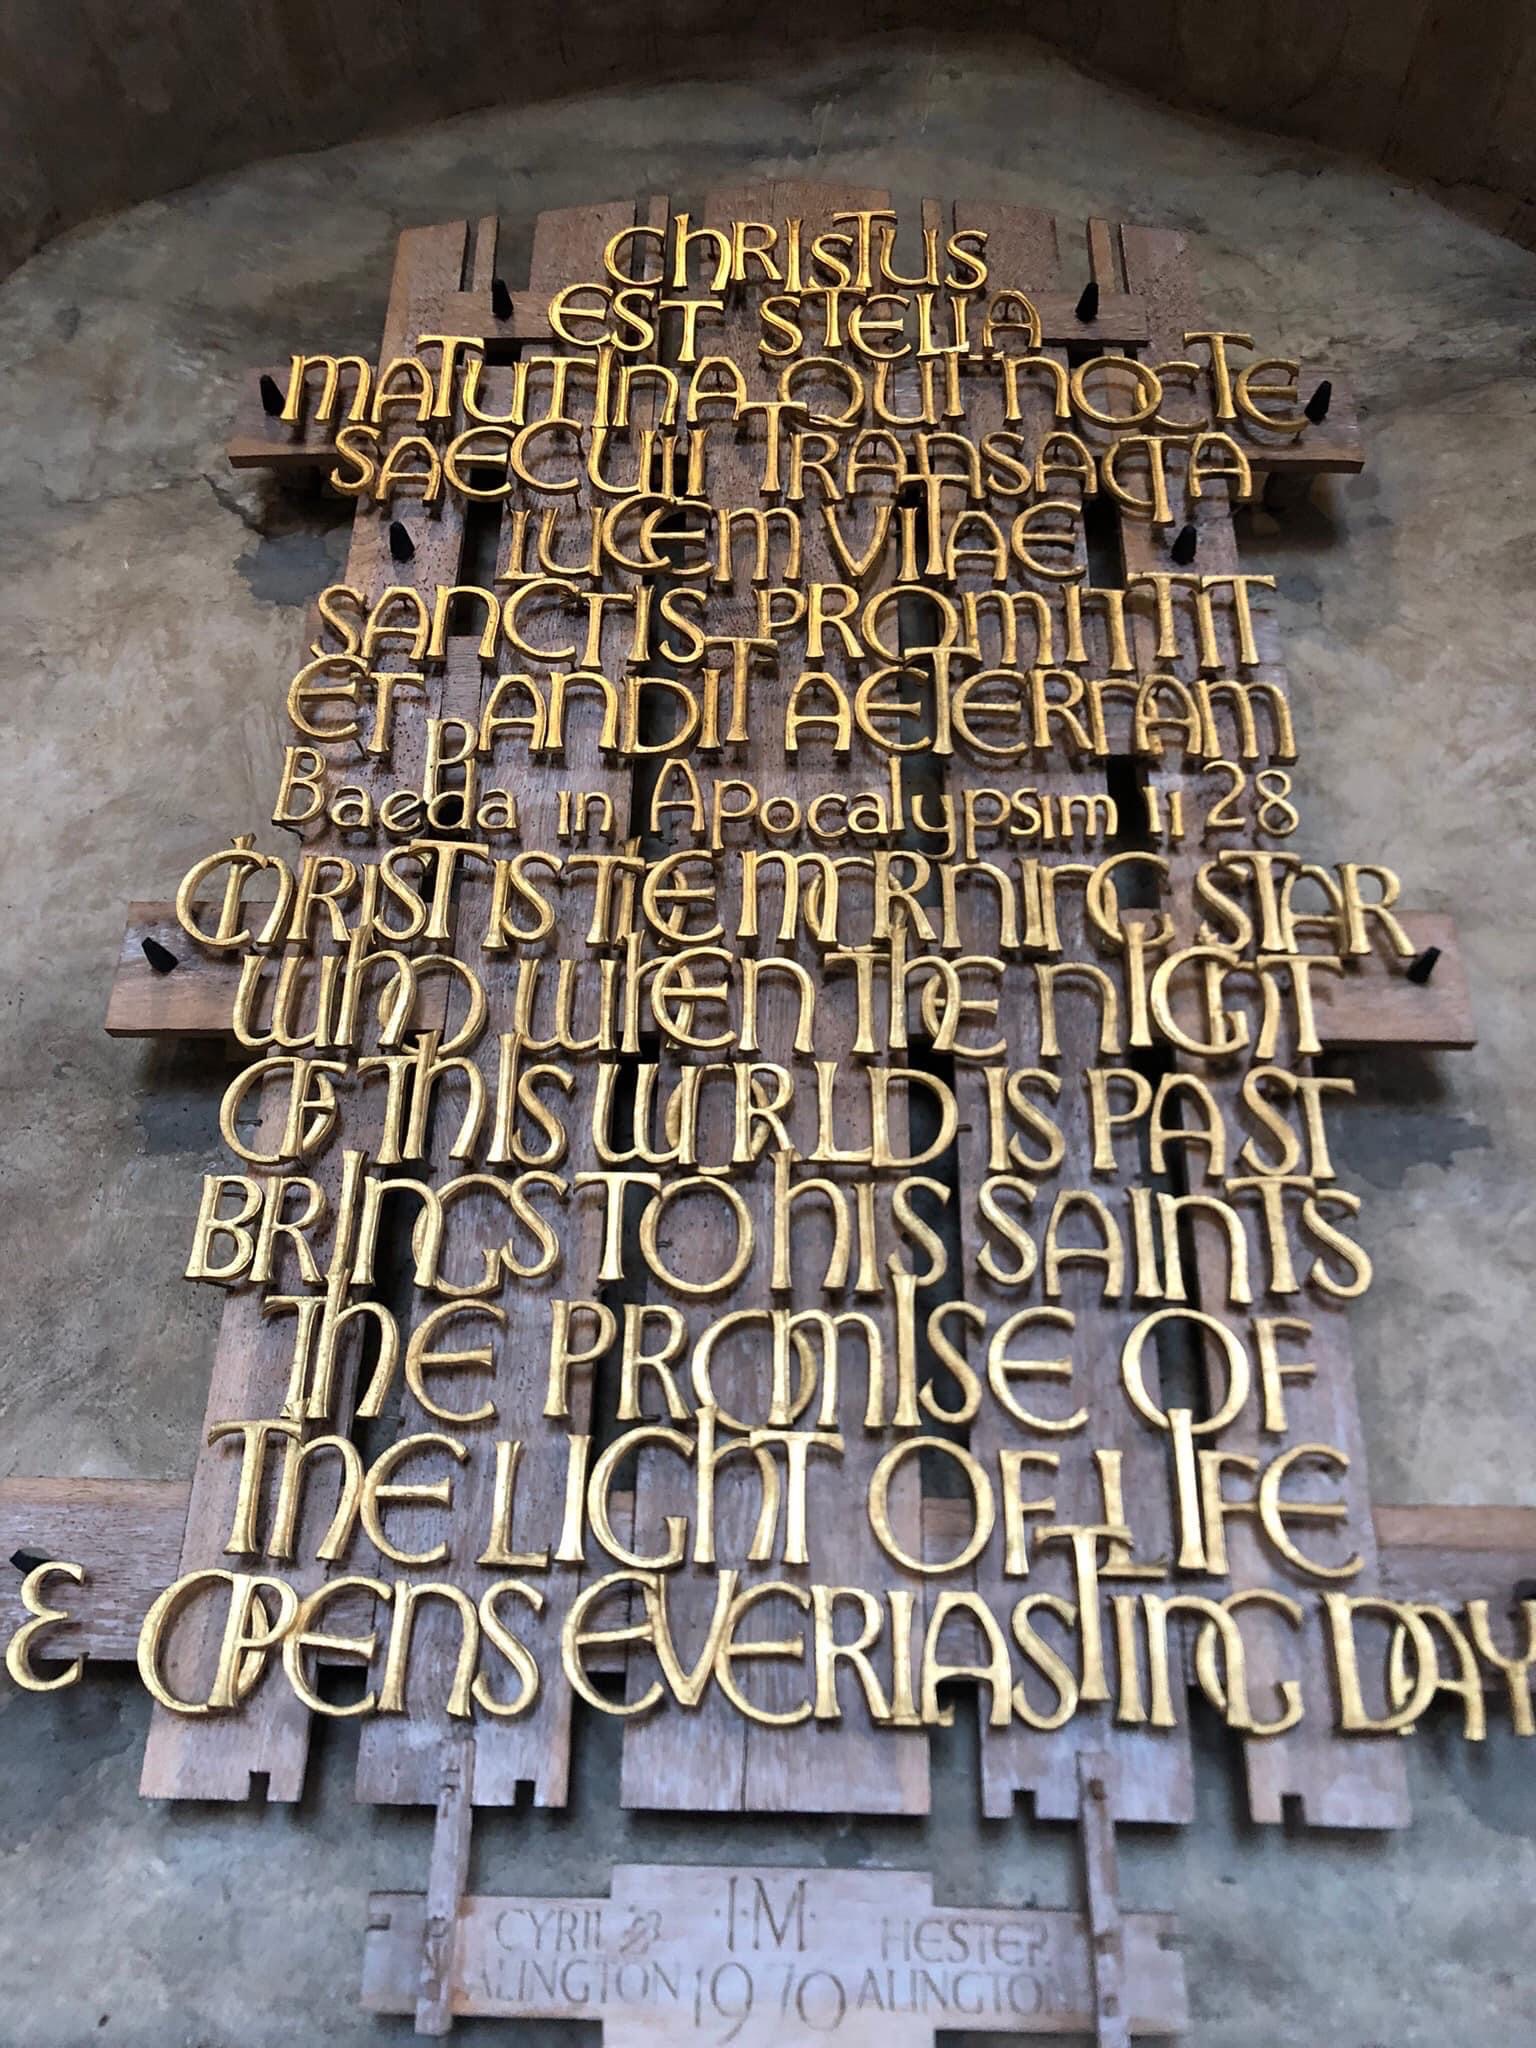 CHRISTUS
EST STELLA
MATUTINA QUI NOCTE
SAECULI TRANSACTA
LUCEM VITAE
SANCTIS PROMITTIT
ET PANDIT AETERNAM
Baeda in Apocalypsim ii 28
CHRIST IS THE MORNING STAR
WHO WHEN THE NIGHT
OF THIS WORLD IS PAST
BRINGS TO HIS SAINTS
THE PROMISE OF
THE LIGHT OF LIFE
& OPENS EVERLASTING DAY
·I·M·
CYRIL & HESTER
ALINGTON 1970 ALINGTON